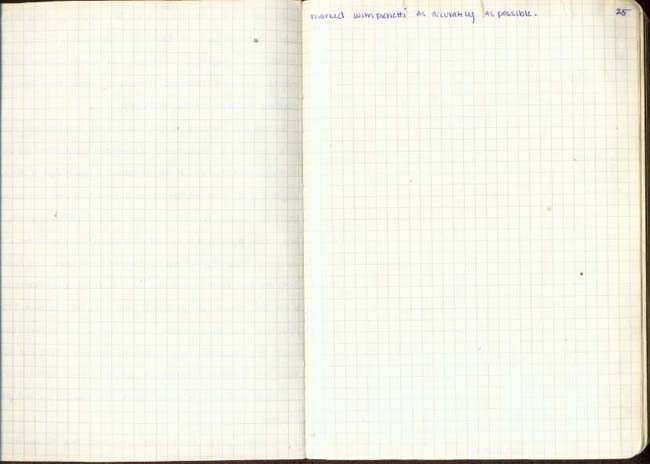 marked with pichetti as accurately as possible. 25